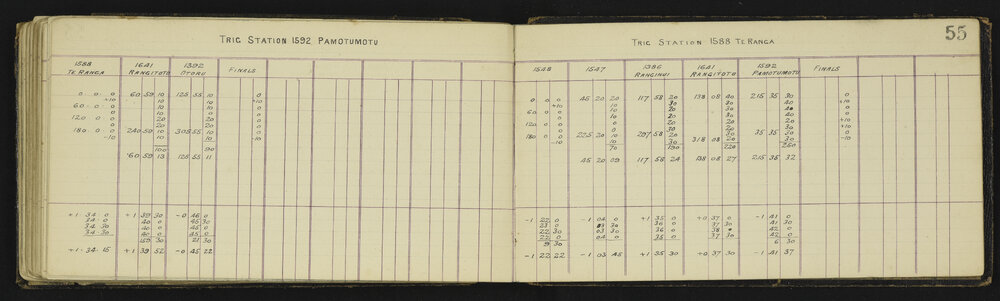 TRIG STATION 1592 PAMOTUMOTU
1588 1641 1392 FINALS
TE RANGA RANGITOTO OTORU
0 0 0 60 59 10 125 55 10 0
+10 10 10 +10
60 0 0 10 10 0
120 0 0 20 20 0
180 0 0 240 59 10 305 55 10 0
-10 10 10 -10
100 90
60 59 13 125 55 11
+1 34 0 +1 39 30 -0 46 0
34 0 40 0 45 30
34 30 40 0 45 0
34 30 40 0 45 0
159 30 21 30
+1 34 15 +1 39 52 -0 45 22
55
TRIG STATION 1588 TE RANGA
1548 1547 1386 1641 1592 FINALS
RANGINUI RANGITOTO PAMOTUMOTU
0 0 0 45 20 20 117 58 20 138 08 40 215 35 30 0
+10 10 30 30 40 +10
60 0 0 10 20 30 40 0
120 0 0 20 20 20 30 0
180 0 0 225 20 10 297 58 20 318 08 35 35 50 0
-10 10 30 20 30 -10
70 190 220 250
45 20 09 117 58 24 138 08 27 215 35 32
-1 22 0 -1 04 0 +1 35 0 +0 37 0 -1 41 0
23 0 03 30 36 0 37 30 41 30
22 30 03 30 36 0 38 42 0
22 0 04 0 35 0 37 30 42 0
9 30 6 30
-1 22 22 -1 03 45 +1 35 30 +0 37 30 -1 41 37